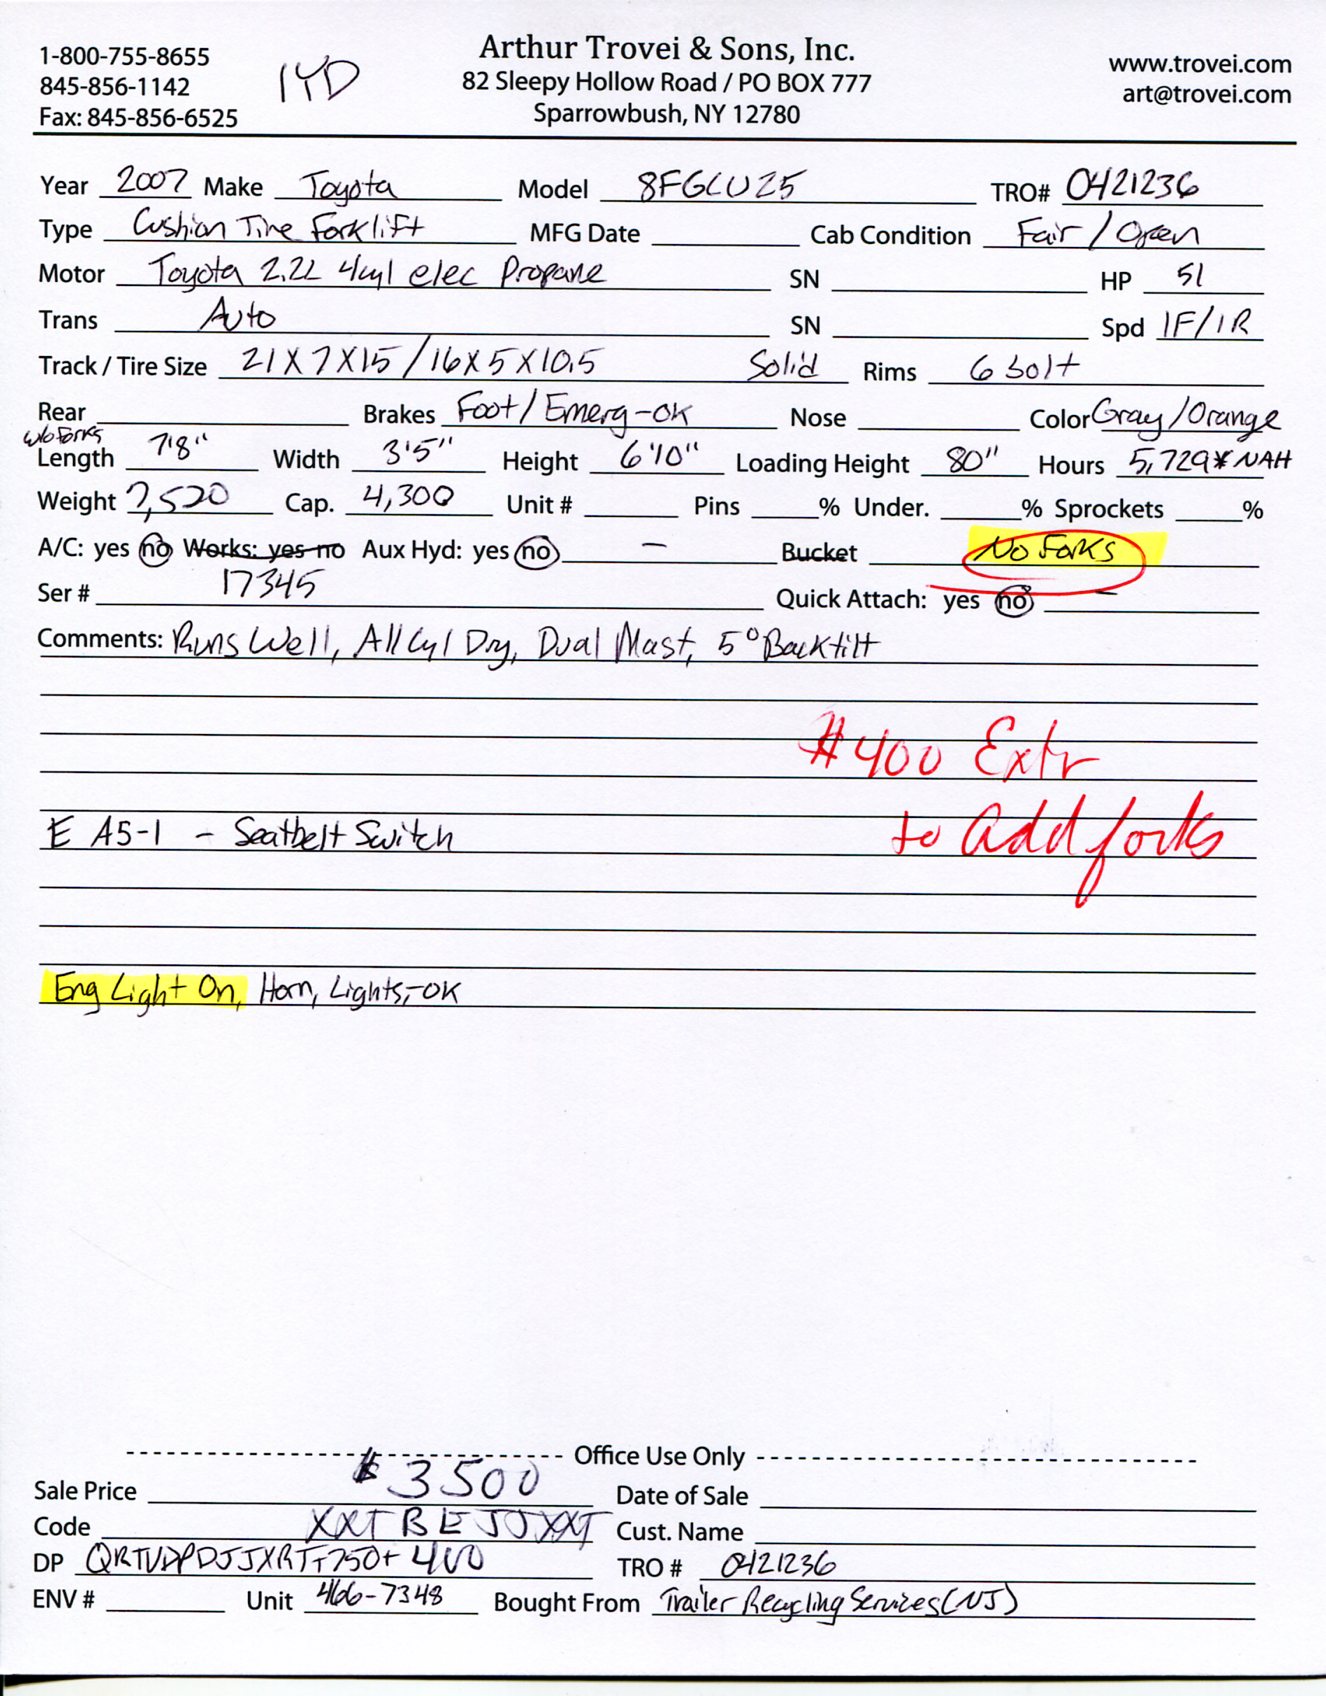 1-800-755-8655
845-856-1142
Fax: 845-856-6525
1YD
Arthur Trovei & Sons, Inc.
82 Sleepy Hollow Road / PO BOX 777
Sparrowbush, NY 12780
www.trovei.com
art@trovei.com
Year 2007 Make Toyota Model 8FGCU25 TRO# 0421236
Type Cushion Tire Forklift MFG Date Cab Condition Fair / Open
Motor Toyota 2.2L 4cyl elec Propane SN HP 51
Trans Auto SN Spd 1F/1R
Track / Tire Size 21 X 7 X 15 / 16 X 5 X 10.5 Solid Rims 6 Bolt
Rear Brakes Foot / Emerg-OK Nose Color Gray / Orange
w/o Forks
Length 7'8" Width 3'5" Height 6'10" Loading Height 80" Hours 5,729* NAH
Weight 7,520 Cap. 4,300 Unit # Pins % Under. % Sprockets %
A/C: yes no Works: yes no Aux Hyd: yes no – Bucket No Forks
Ser # 17345 Quick Attach: yes no –
Comments: Runs Well, All Cyl Dry, Dual Mast, 5° Backtilt
$400 Extr
to Add forks
E A5-1 - Seatbelt Switch
Eng Light On, Horn, Lights,-OK
Office Use Only
Sale Price $3500 Date of Sale
Code XXTBEJJXXT Cust. Name
DP +750+ 400 TRO # 0421236
ENV # Unit 466-7348 Bought From Trailer Recycling Services (NJ)